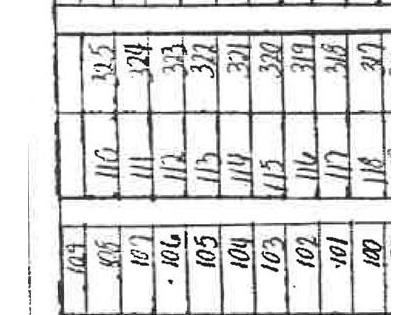 325 324 323 322 321 320 319 318 317
110 111 112 113 114 115 116 117 118
109 108 107 106 105 104 103 102 101 100